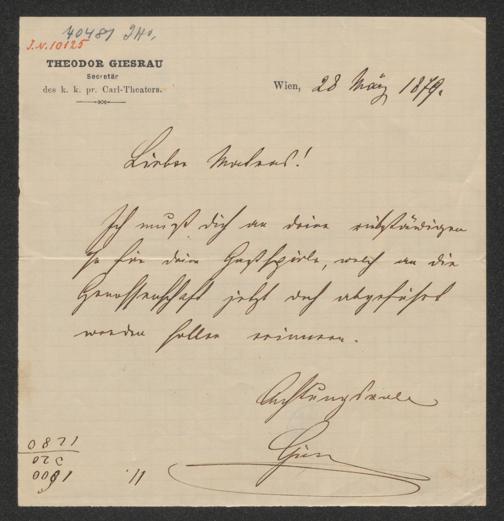 70487 JHo,
I.N. 10125
THEODOR GIESRAU
Secretär
des k. k. pr. Carl-Theaters.
Wien, 28 März 1879.
Lieber Matras!
Ich muß dich an deine rückständigen
für deine Gastspiele, welch an die
Genossenschaft jetzt doch abgeführt
werden sollen erinnern.
Achtungsvoll
Gies
11.
1800
520
1280